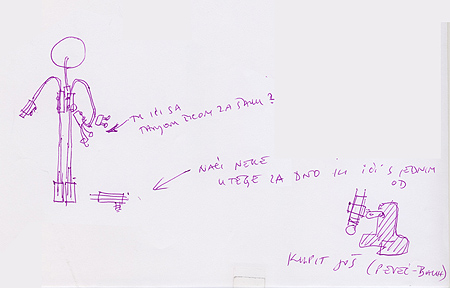 TU IĆI SA
TANJOM ŽICOM ZA ŠAKU?
NAĆI NEKE
UTEGE ZA DNO ILI IĆI S JEDNIM
OD
KUPIT JOŠ (PEVEC-BAUH)